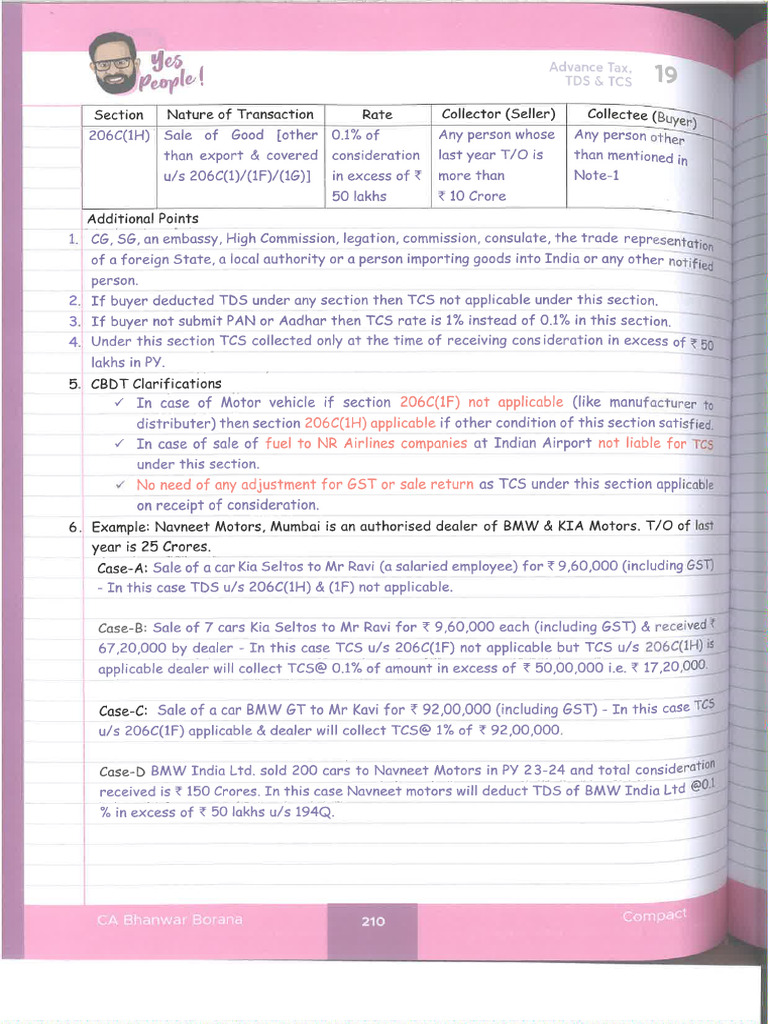 Yes
People!
Advance Tax,
TDS & TCS
19
Section Nature of Transaction Rate Collector (Seller) Collectee (Buyer)
206C(1H) Sale of Good [other 0.1% of Any person whose Any person other
than export & covered consideration last year T/O is than mentioned in
u/s 206C(1)/(1F)/(1G)] in excess of ₹ more than Note-1
50 lakhs ₹ 10 Crore
Additional Points
1. CG, SG, an embassy, High Commission, legation, commission, consulate, the trade representation
of a foreign State, a local authority or a person importing goods into India or any other notified
person.
2. If buyer deducted TDS under any section then TCS not applicable under this section.
3. If buyer not submit PAN or Aadhar then TCS rate is 1% instead of 0.1% in this section.
4. Under this section TCS collected only at the time of receiving consideration in excess of ₹ 50
lakhs in PY.
5. CBDT Clarifications
✓ In case of Motor vehicle if section 206C(1F) not applicable (like manufacturer to
distributer) then section 206C(1H) applicable if other condition of this section satisfied.
✓ In case of sale of fuel to NR Airlines companies at Indian Airport not liable for TCS
under this section.
✓ No need of any adjustment for GST or sale return as TCS under this section applicable
on receipt of consideration.
6. Example: Navneet Motors, Mumbai is an authorised dealer of BMW & KIA Motors. T/O of last
year is 25 Crores.
Case-A: Sale of a car Kia Seltos to Mr Ravi (a salaried employee) for ₹ 9,60,000 (including GST)
- In this case TDS u/s 206C(1H) & (1F) not applicable.
Case-B: Sale of 7 cars Kia Seltos to Mr Ravi for ₹ 9,60,000 each (including GST) & received ₹
67,20,000 by dealer - In this case TCS u/s 206C(1F) not applicable but TCS u/s 206C(1H) is
applicable dealer will collect TCS@ 0.1% of amount in excess of ₹ 50,00,000 i.e. ₹ 17,20,000.
Case-C: Sale of a car BMW GT to Mr Kavi for ₹ 92,00,000 (including GST) - In this case TCS
u/s 206C(1F) applicable & dealer will collect TCS@ 1% of ₹ 92,00,000.
Case-D BMW India Ltd. sold 200 cars to Navneet Motors in PY 23-24 and total consideration
received is ₹ 150 Crores. In this case Navneet motors will deduct TDS of BMW India Ltd @0.1
% in excess of ₹ 50 lakhs u/s 194Q.
CA Bhanwar Borana
210
Compact